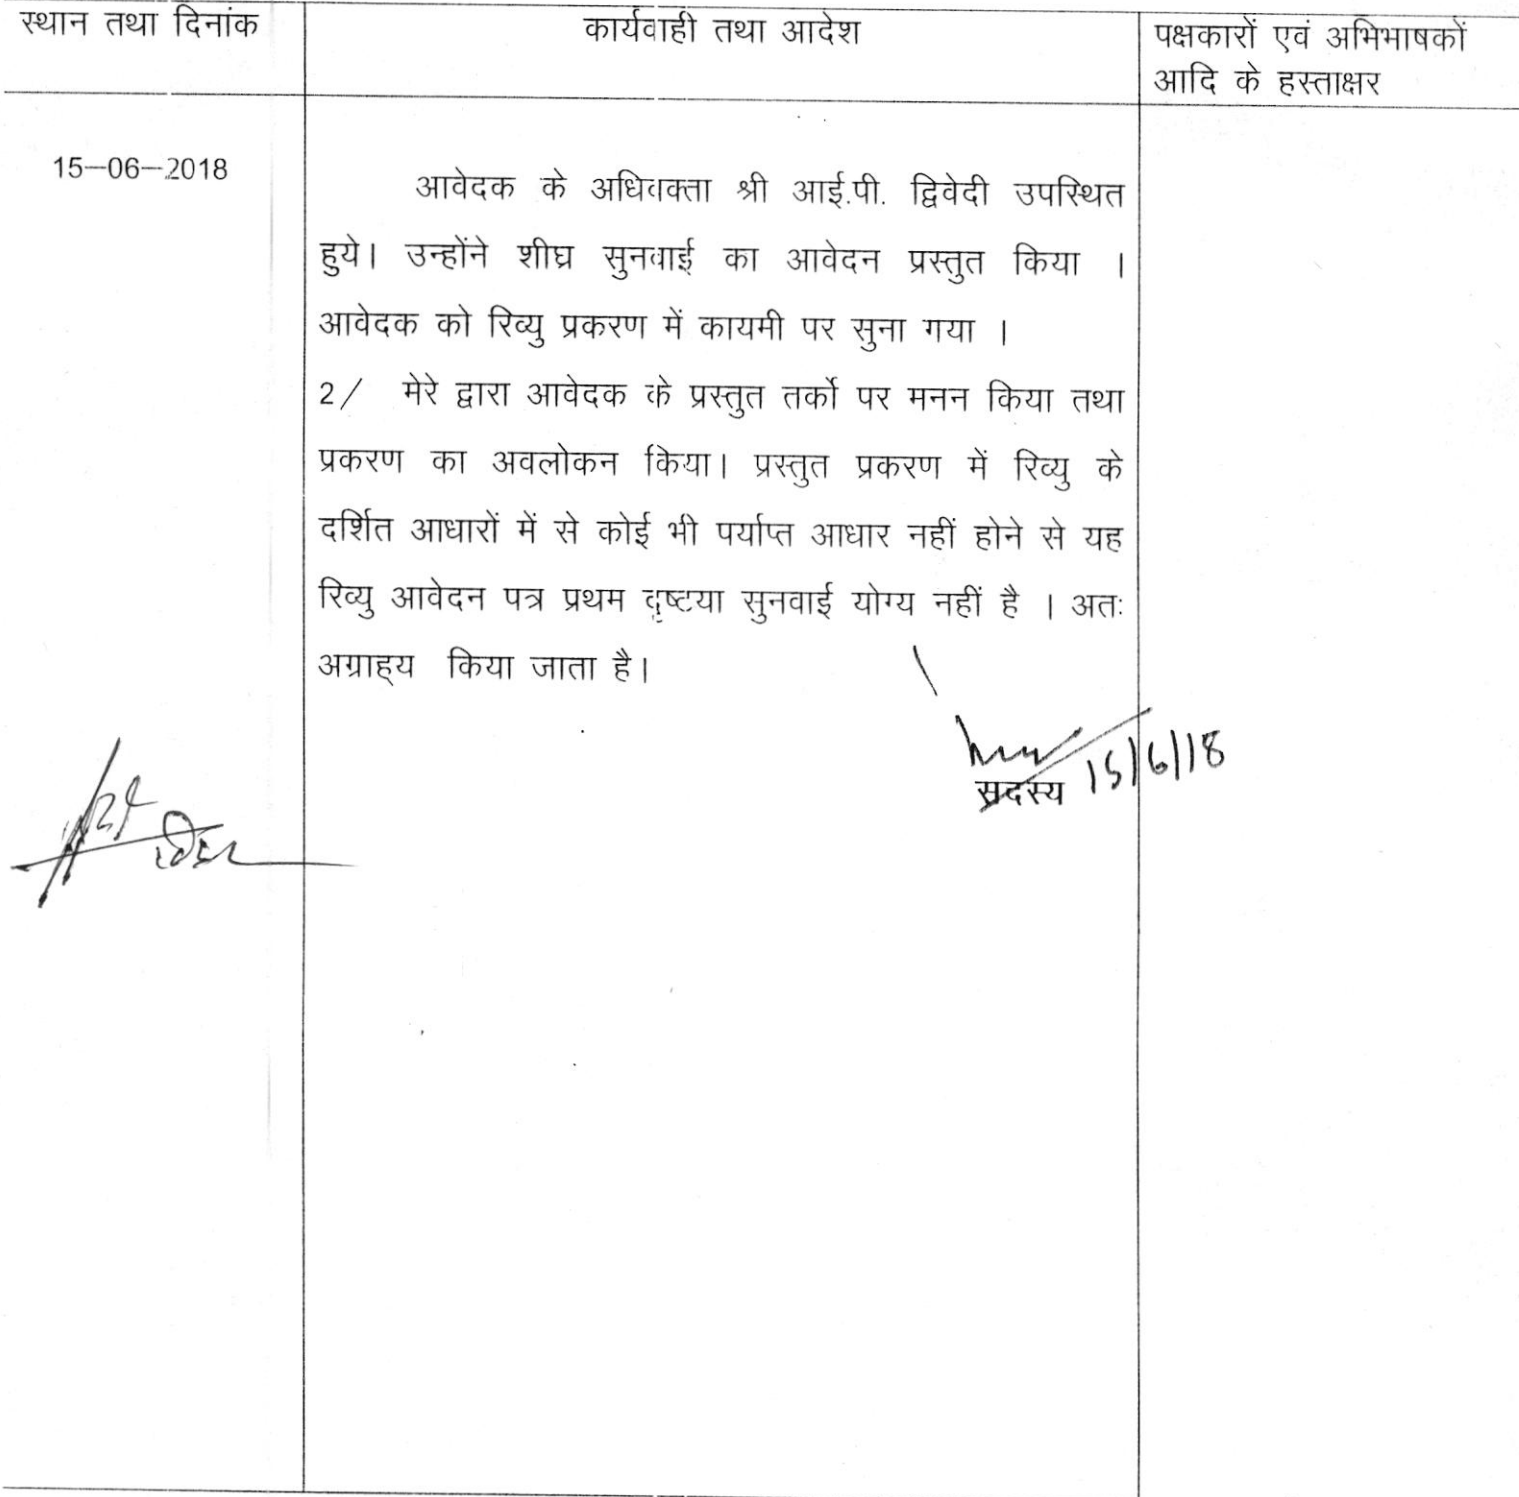 स्थान तथा दिनांक
कार्यवाही तथा आदेश
पक्षकारों एवं अभिभाषकों
आदि के हस्ताक्षर
15–06–2018
आवेदक के अधिवक्ता श्री आई.पी. द्विवेदी उपस्थित
हुये। उन्होंने शीघ्र सुनवाई का आवेदन प्रस्तुत किया ।
आवेदक को रिव्यु प्रकरण में कायमी पर सुना गया ।
2/ मेरे द्वारा आवेदक के प्रस्तुत तर्को पर मनन किया तथा
प्रकरण का अवलोकन किया। प्रस्तुत प्रकरण में रिव्यु के
दर्शित आधारों में से कोई भी पर्याप्त आधार नहीं होने से यह
रिव्यु आवेदन पत्र प्रथम दृष्टया सुनवाई योग्य नहीं है । अतः
अग्राह्य किया जाता है।
15/6/18
सदस्य